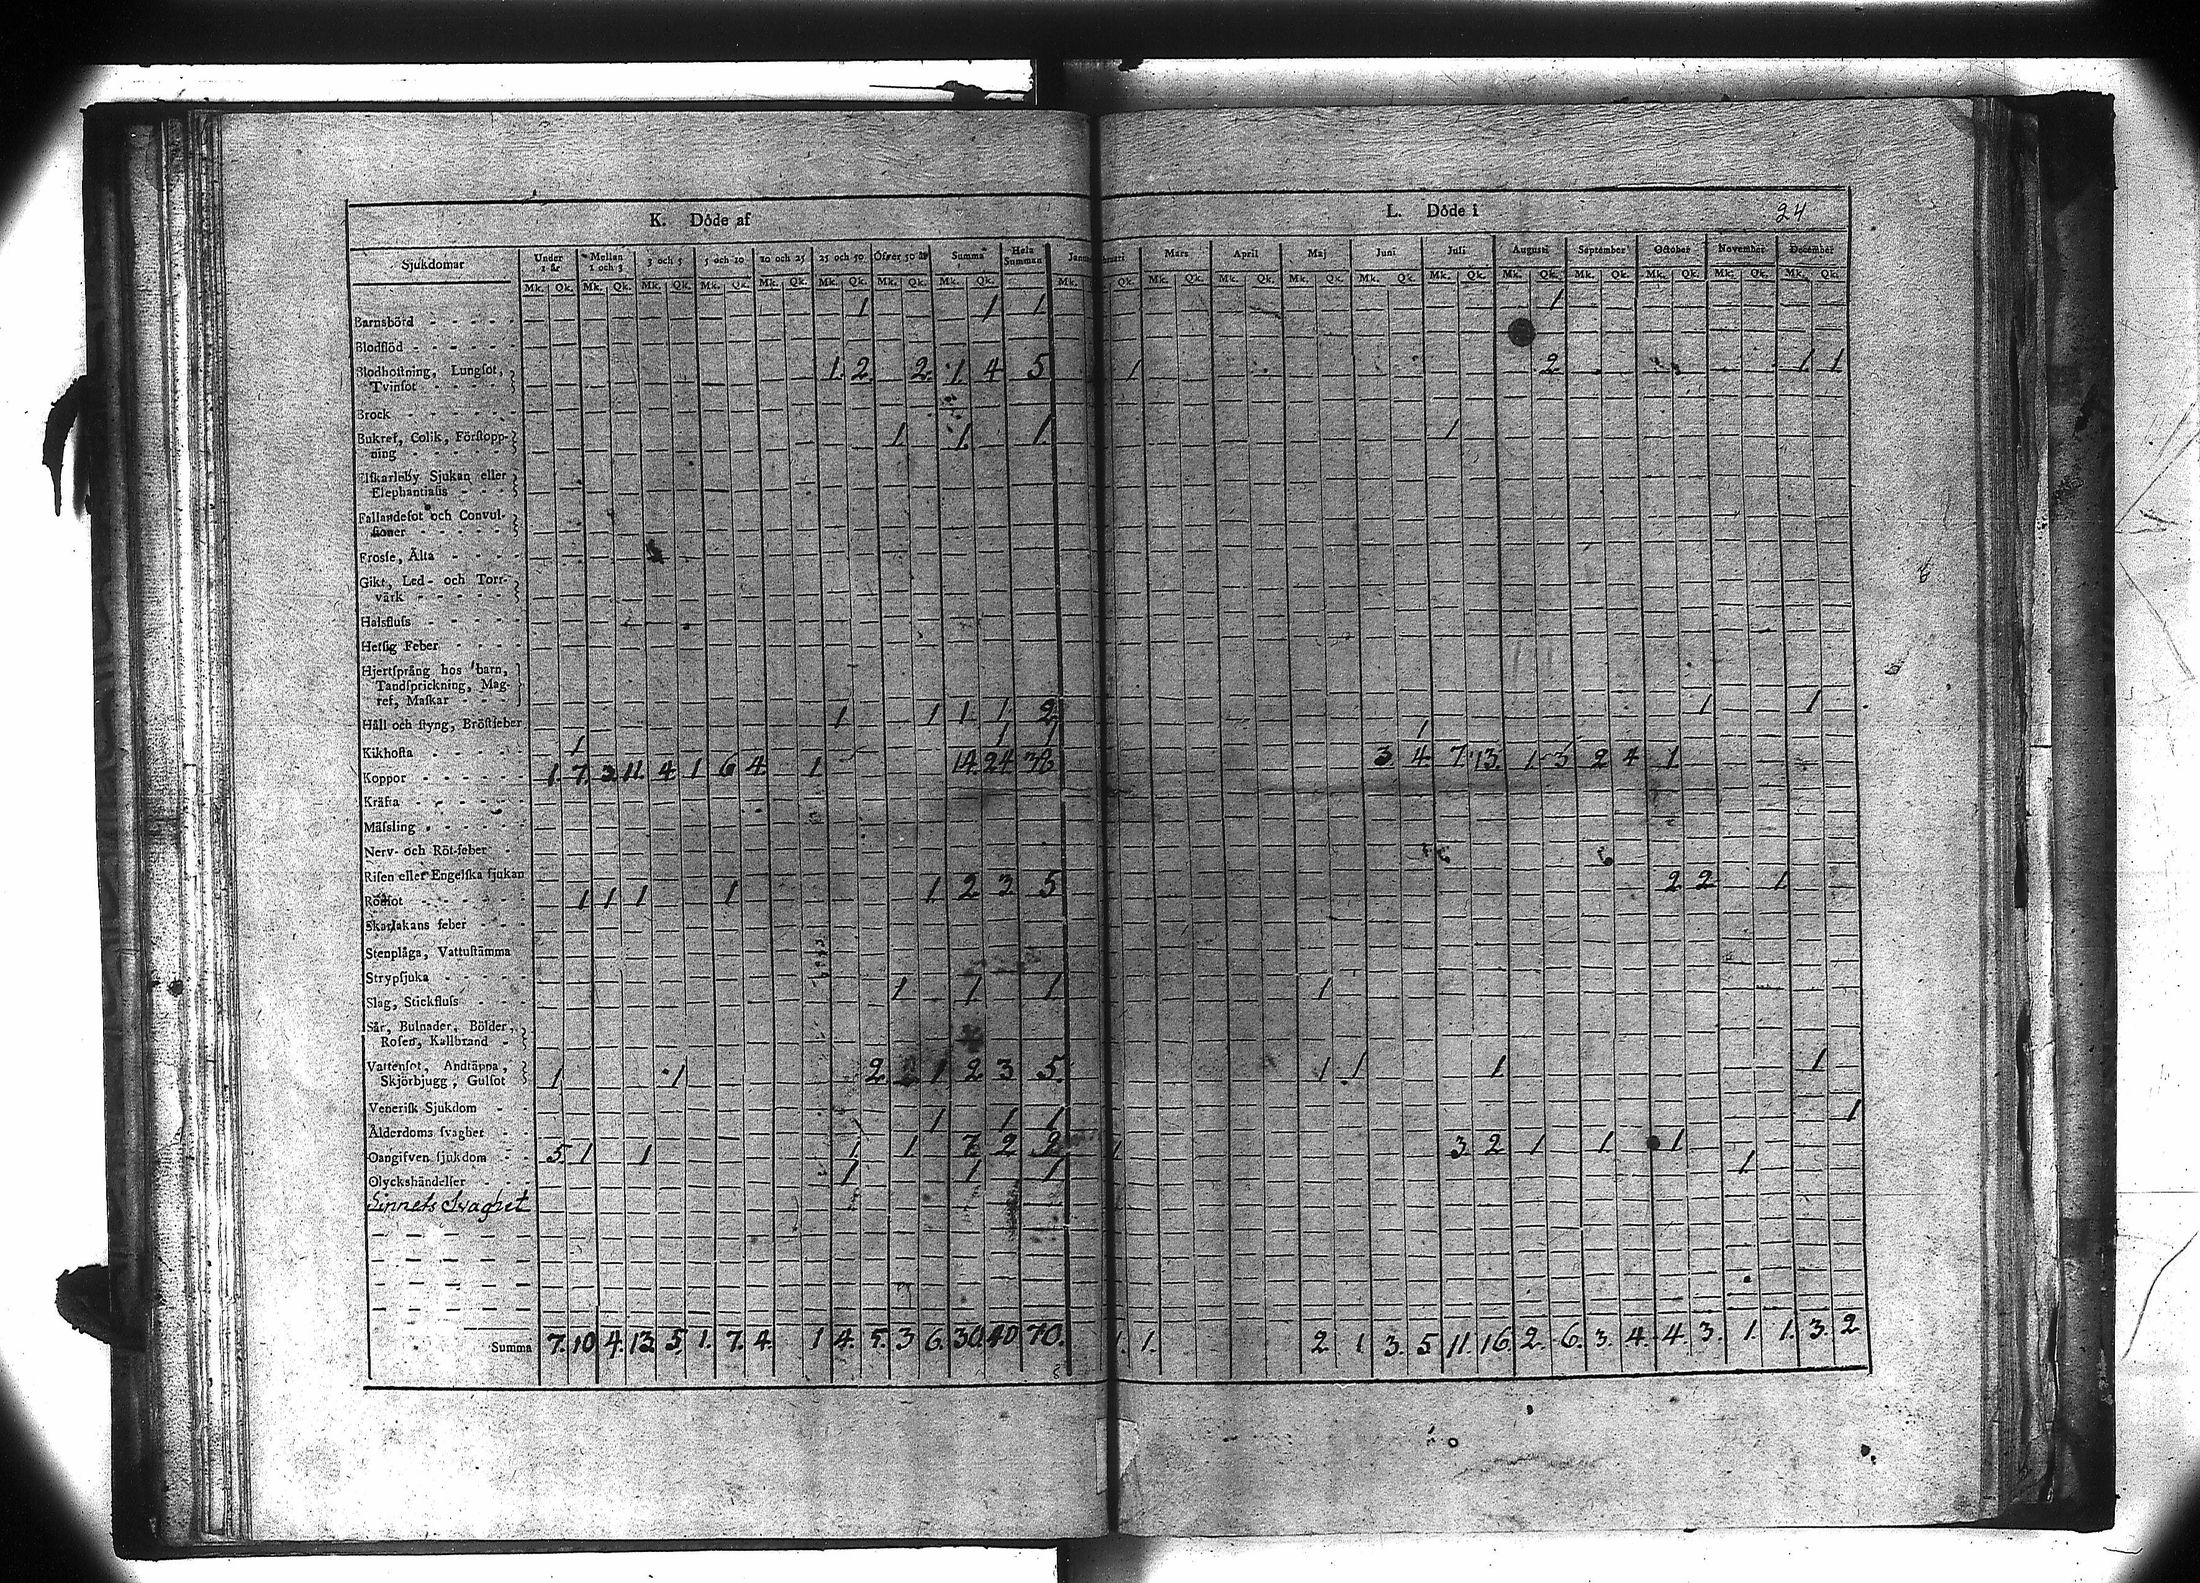 K. Döde af
L. Döde i 24
Sjukdomar Under 1 år Mellan 1 och 3 3 och 5 5 och 10 10 och 25 25 och 50 Öfver 50 år Summa Hela Summan Mars April Maj Juni Juli Augusti September October November December
Mk. Qk. Mk. Qk. Mk. Qk. Mk. Qk. Mk. Qk. Mk. Qk. Mk. Qk. Mk. Qk. Mk. Qk. Mk. Qk. Mk. Qk. Mk. Qk. Mk. Qk. Mk. Qk. Mk. Qk. Mk. Qk. Mk. Qk. Mk. Qk. Mk. Qk.
Barnsbörd - - - - - 1 1 1 1
Blodflöd - - - - - -
Blodhostning, Lungsot, 1. 2. 2. 1. 4 5 1 2 1 1
Tvinsot - - - - -
Brock - - - - - -
Bukref, Colik, Förstopp- 1 1. 1. 1
ning - - - - - -
Elfkarleby Sjukan eller
Elephantiasis - - -
Fallandesot och Convul-
sioner - - - - -
Frosse, Älta - - - -
Gikt, Led- och Torr-
värk - - - - -
Halsfluss - - - - -
Hetsig Feber - - - -
Hjertsprång hos barn,
Tandsprickning, Mag-
ref, Maskar - - -
Håll och styng, Bröstfeber 1 1 1. 1. 2 1 1
Kikhosta - - - - - 1 1 1 1
Koppor - - - - - - 1. 7. 3 11. 4 1 6 4. 1. 14. 24 38 3 4 7 13. 1 3 2 4 1
Kräfta - - - - - -
Mässling - - - - - -
Nerv- och Röt-feber -
Risen eller Engelska sjukan
Rödsot - - - - - 1 1 1 1 1 2 3 5 2 2 1
Skarlakans feber - - -
Stenplåga, Vattustämma
Strypsjuka - - - - -
Slag, Stickfluss - - - 1 1 1 1
Sår, Bulnader, Bölder,
Rosen, Kallbrand -
Vattensot, Andtäppa,
Skjörbjugg, Gulsot 1 1 2. 2 1 2 3 5. 1 1 1 1
Venerisk Sjukdom - -
Ålderdoms svaghet - - 1 1 1 1
Oangifven sjukdom - - 5 1 1 1 1 7 2 1 3 2 1 1 1
Olyckshändelser - - - 1 1 1 1
Sinnets Svaghet
Summa 7. 10 4. 13 5. 1. 7. 4. 1 4. 5. 3 6. 30. 40 70. 1. 1. 2 1 3. 5 11. 16. 2. 6. 3. 4. 4. 3. 1. 1. 3. 2